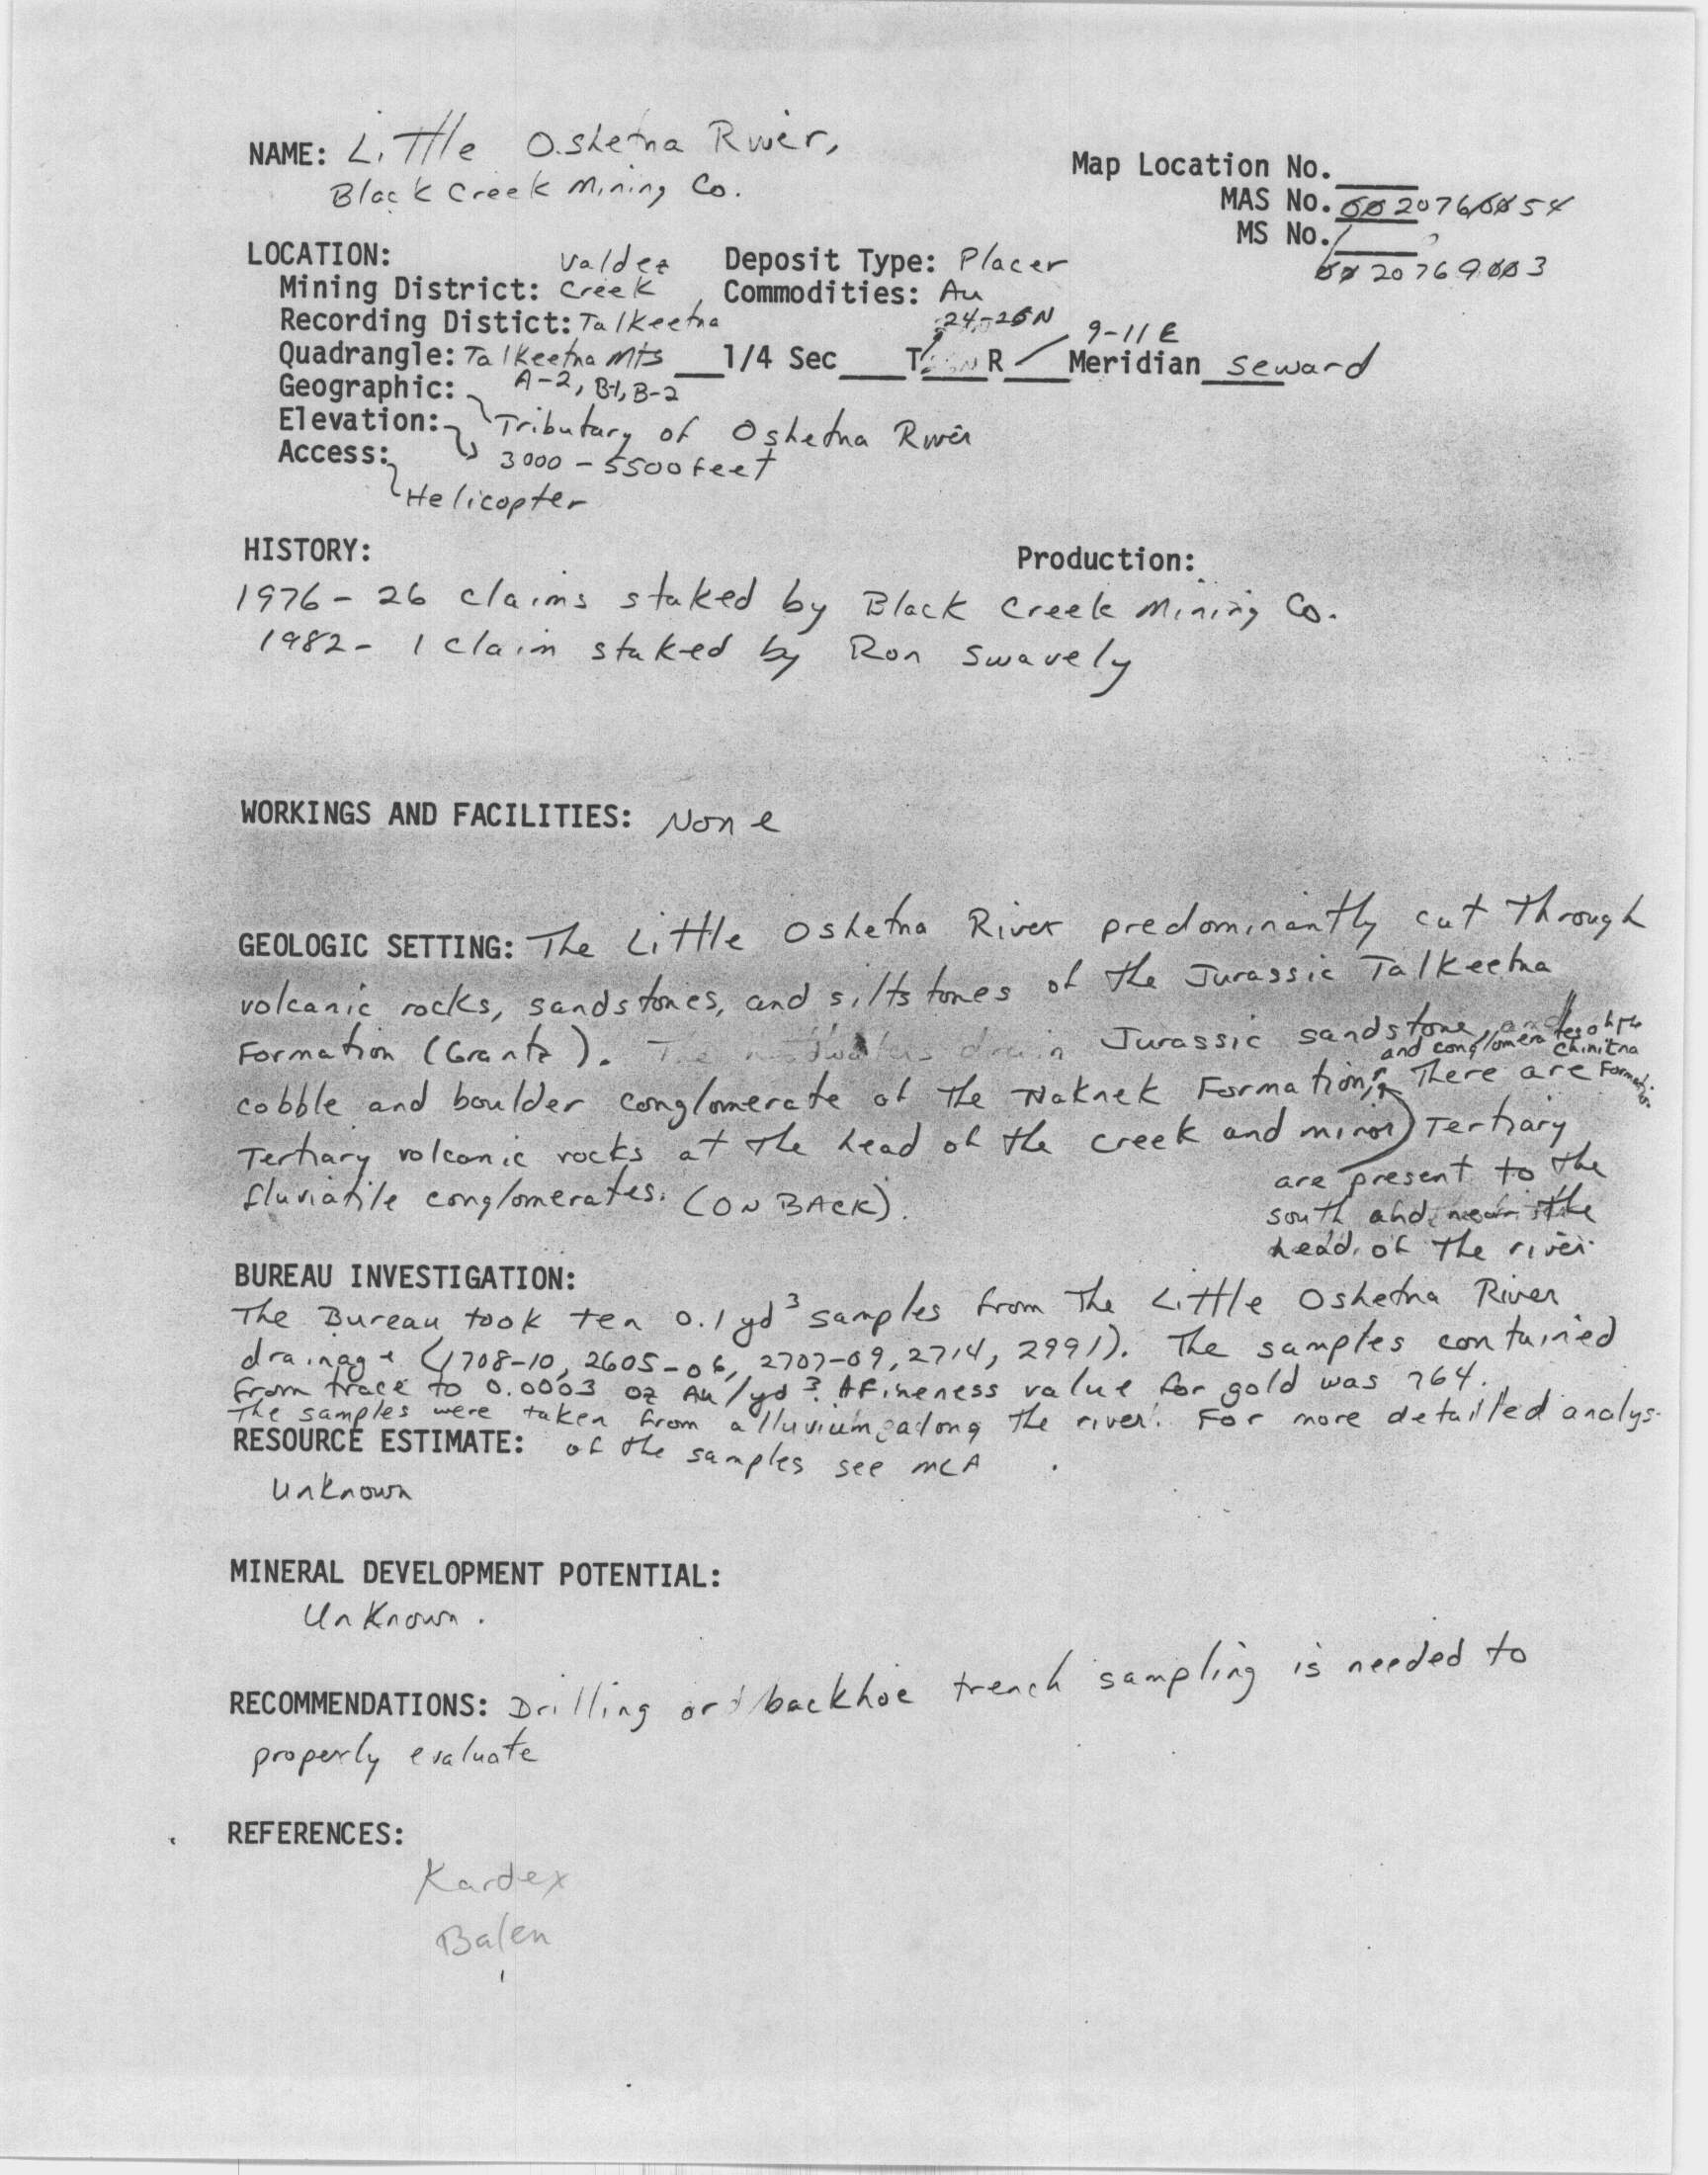 NAME: Little Oshetna River,
Black Creek Mining Co.
Map Location No.
MAS No. 0020760054
MS No.
0020769003
LOCATION:
Mining District: Valdez Creek
Deposit Type: Placer
Commodities: Au
Recording Distict: Talkeetna
24-25N
9-11 E
Quadrangle: Talkeetna Mts ___1/4 Sec____T____R____Meridian Seward
A-2, B-1, B-2
Geographic: Tributary of Oshetna River
Elevation: 3000 - 5500 feet
Access: Helicopter
HISTORY:
Production:
1976 - 26 claims staked by Black Creek Mining Co.
1982 - 1 claim staked by Ron Swavely
WORKINGS AND FACILITIES: None
GEOLOGIC SETTING: The Little Oshetna River predominantly cut through
volcanic rocks, sandstones, and siltstones of the Jurassic Talkeetna
Formation (Grantz). Jurassic sandstone,
and conglomerates of the Chinitna Formation.
cobble and boulder conglomerate of the Naknek Formation, There are
Tertiary volcanic rocks at the head of the creek and minor Tertiary
fluviatile conglomerates. (ON BACK).
are present to the
south and near the
head of the river.
BUREAU INVESTIGATION:
The Bureau took ten 0.1 yd³ samples from the Little Oshetna River
drainage (1708-10, 2605-06, 2707-09, 2714, 2991). The samples contained
from trace to 0.0003 oz Au/yd³. A Fineness value for gold was 764.
The samples were taken from alluvium along the river. For more detailed analys.
of the samples see MLA .
RESOURCE ESTIMATE:
Unknown
MINERAL DEVELOPMENT POTENTIAL:
Unknown.
RECOMMENDATIONS: Drilling or backhoe trench sampling is needed to
properly evaluate
REFERENCES:
Kardex
Balen